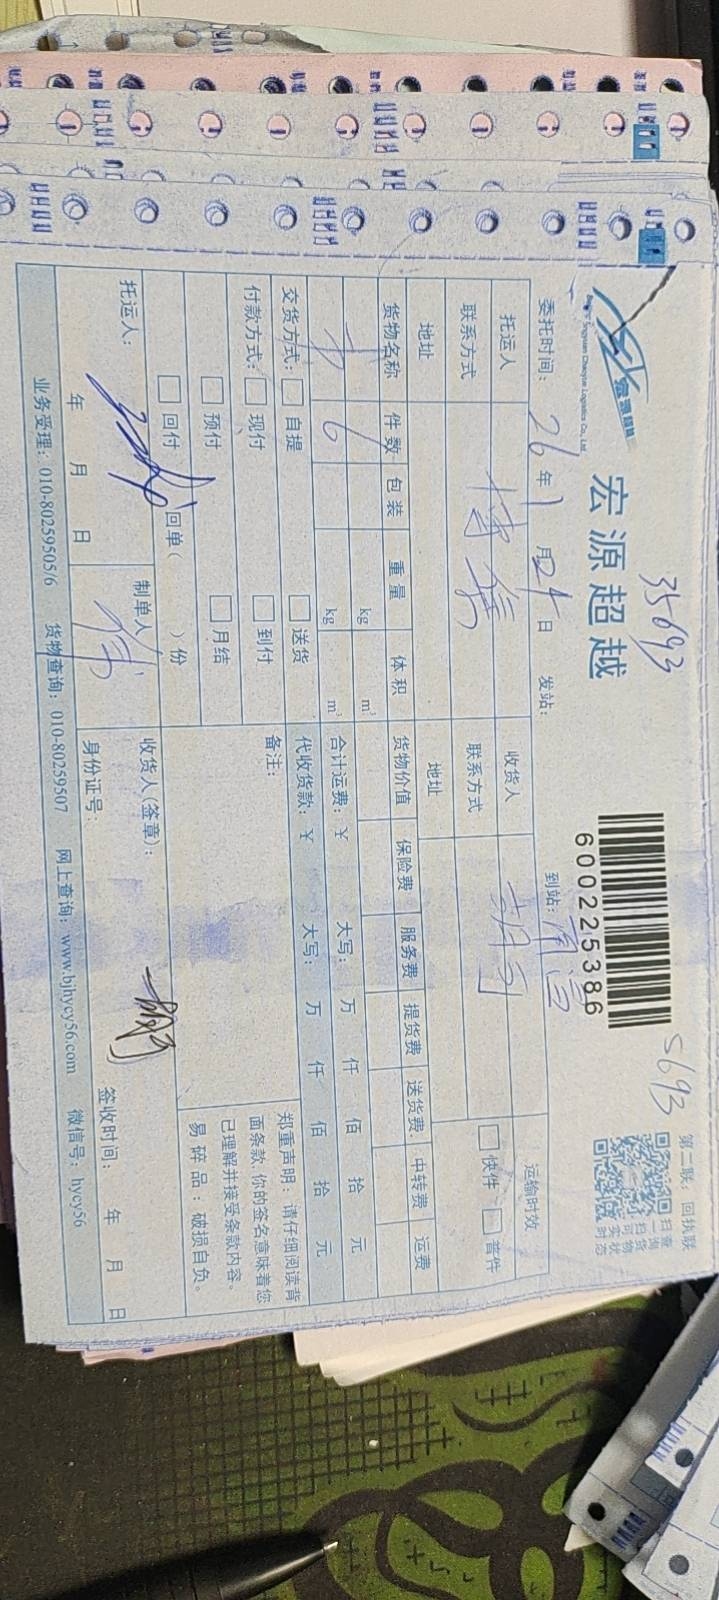 35693
宏源超越
600225386
5693
第二联：回执联
扫一扫可实时
查询货物状态
委托时间：26年1月24日 发站： 到站：
托运人 收货人 运输时效
联系方式 联系方式 快件 普件
地址 地址
货物名称 件数 包装 重量 体积 货物价值 保险费 服务费 提货费 送货费 中转费 运费
kg m³
6 kg m³ 合计运费：￥ 大写： 万 仟 佰 拾 元
交货方式： 自提 送货 代收货款：￥ 大写： 万 仟 佰 拾 元
付款方式： 现付 到付 备注：
预付 月结
回付 回单（ ）份
郑重声明：请仔细阅读背
面条款，你的签名意味着您
已理解并接受条款内容。
易碎品：破损自负。
托运人： 制单人 收货人(签章)：
年 月 日 身份证号： 签收时间： 年 月 日
业务受理：010-80259505/6 货物查询：010-80259507 网上查询：www.bjhycy56.com 微信号：hycy56